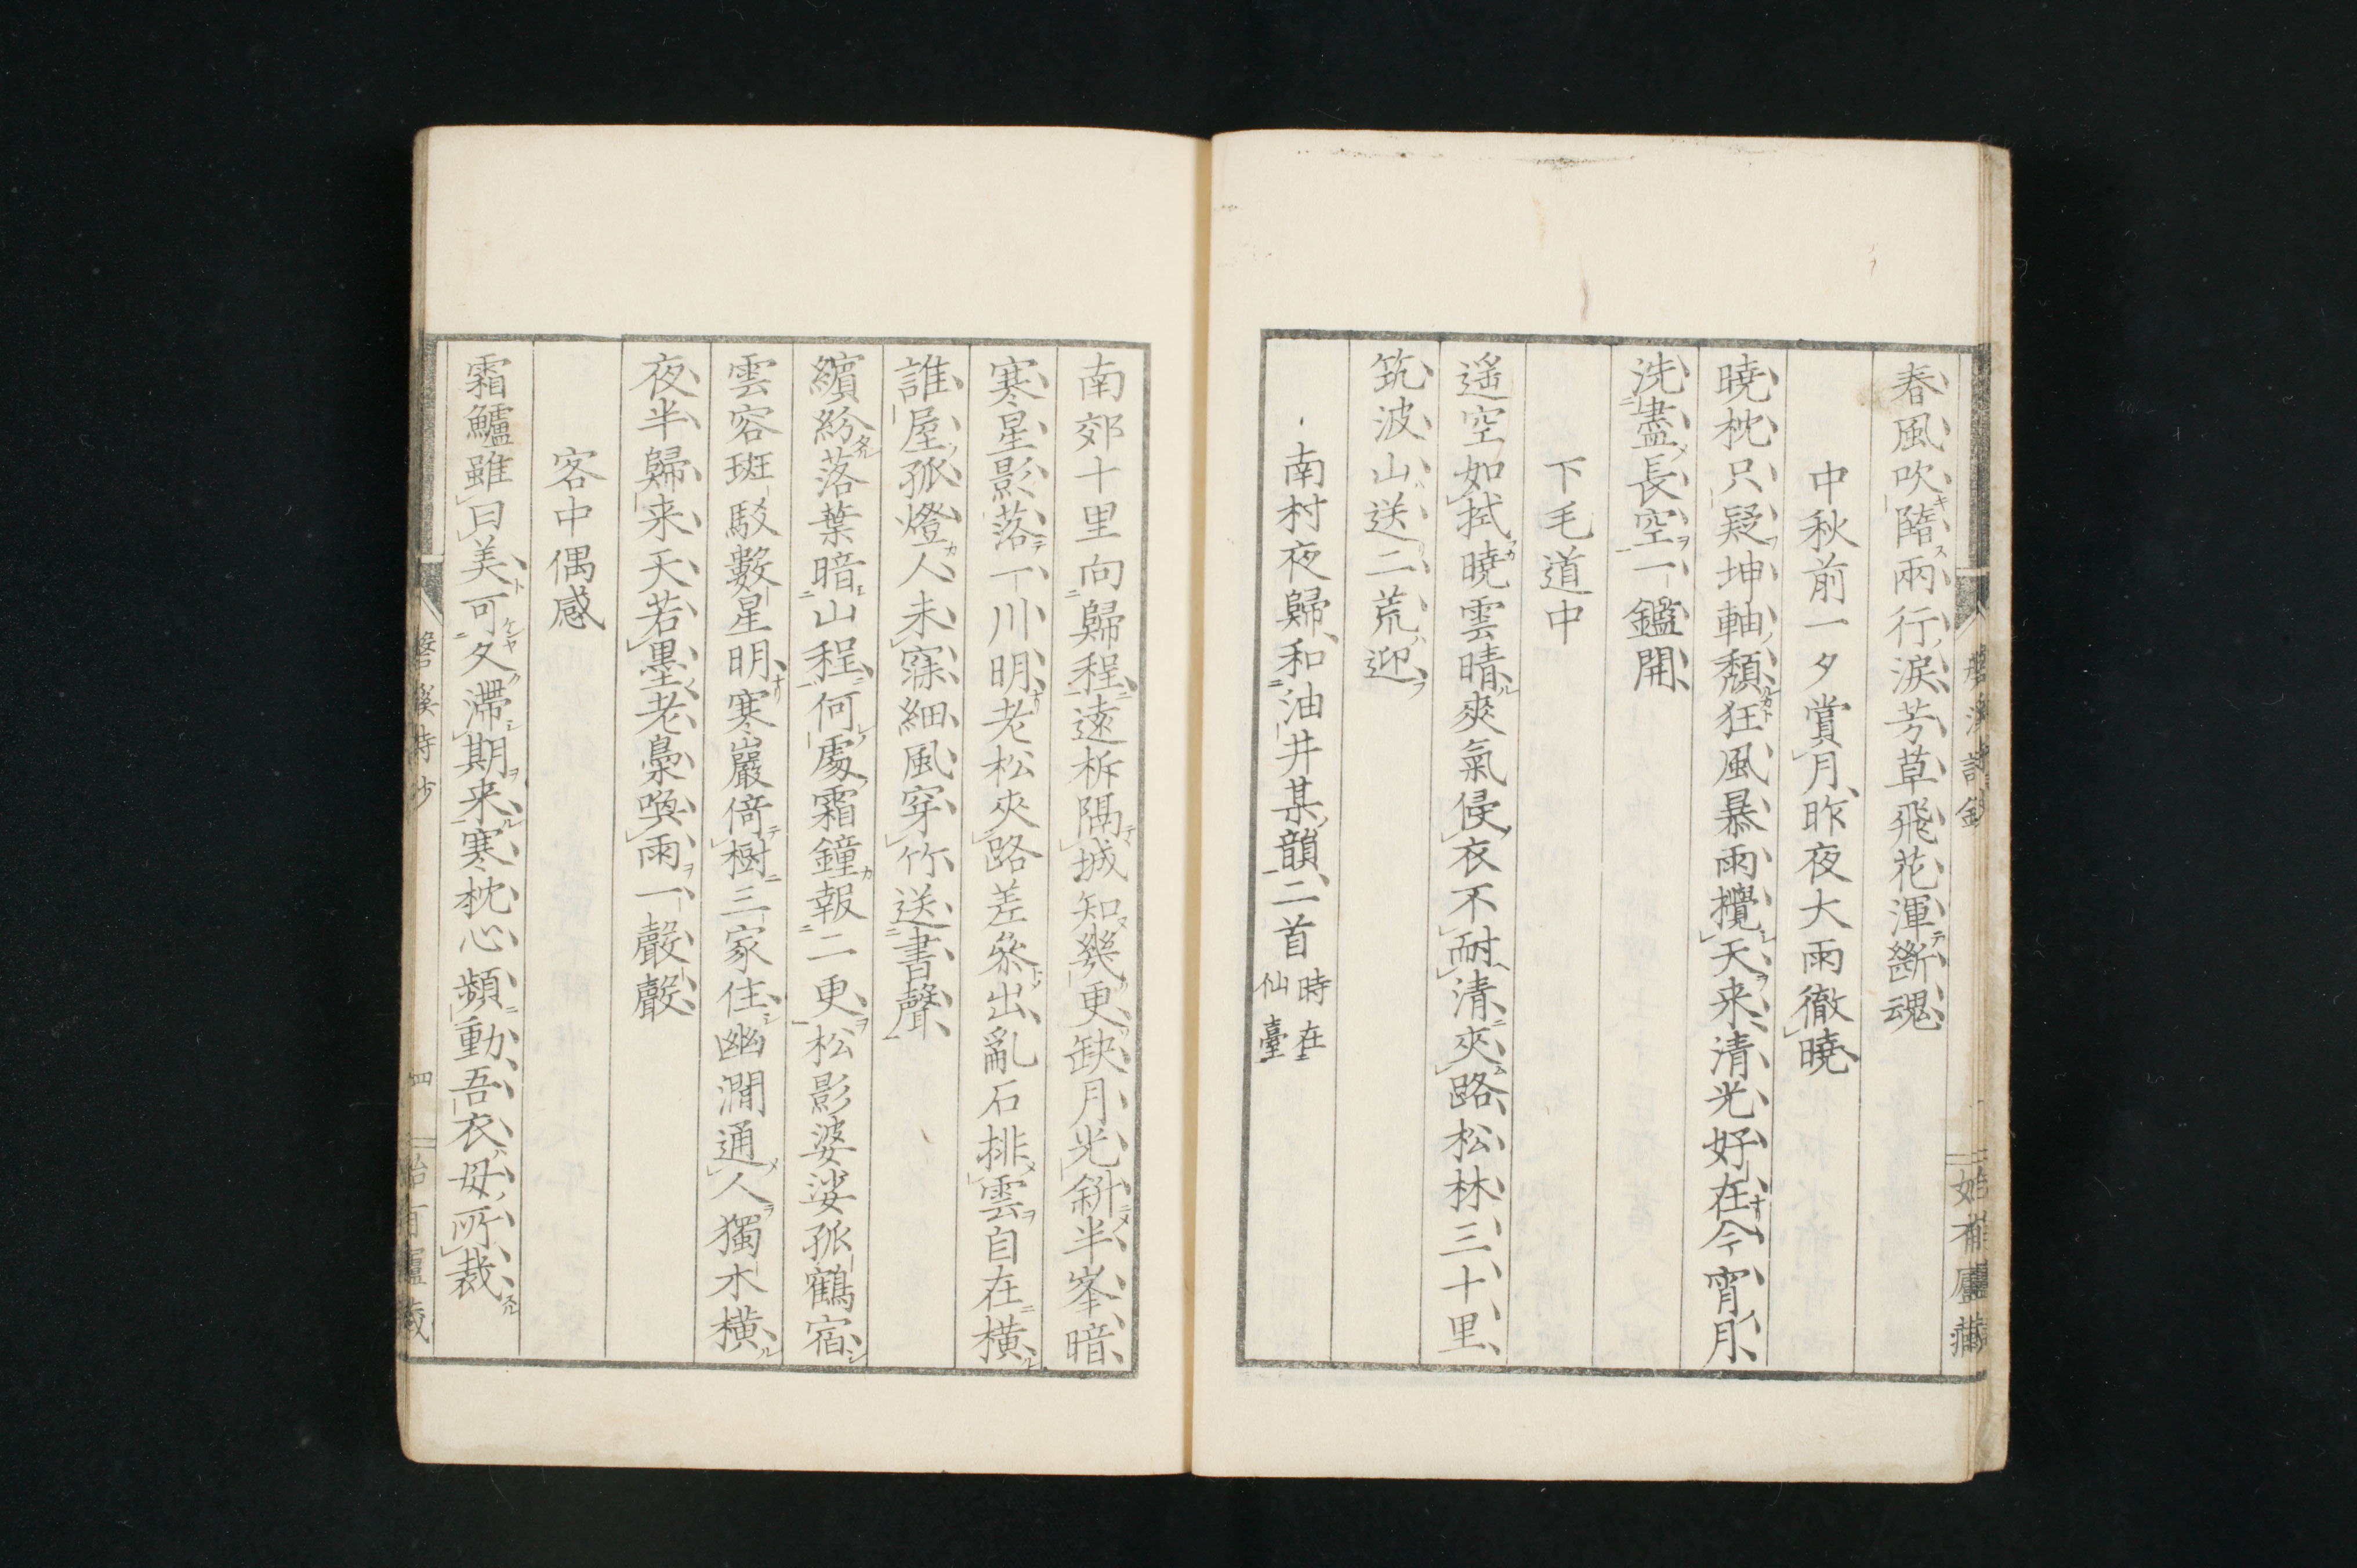 春風吹隨兩行淚芳草飛花渾斷魂
中秋前一夕賞月昨夜大雨徹曉
曉枕只疑坤軸頽狂風暴雨攪天来清光好在今宵月
洗盡長空一鑑開
下毛道中
遥空如拭曉雲晴爽氣侵衣不耐清夾路松林三十里
筑波山送二荒迎
南村夜歸和油井某韻二首時在仙臺
南郊十里向歸程遠柝隔城知幾更缺月光斜半峯暗
寒星影落一川明老松夾路差参出亂石排雲自在横
誰屋孤燈人未寐細風穿竹送書聲
繽紛落葉暗山程何處霜鐘報二更松影婆娑孤鶴宿
雲容斑駁數星明寒巖倚樹三家住幽澗通人獨木横
夜半歸来天若墨老梟喚雨一聲聲
客中偶感
霜鱸雖曰美可久滯期来寒枕心頻動吾衣母所裁
四